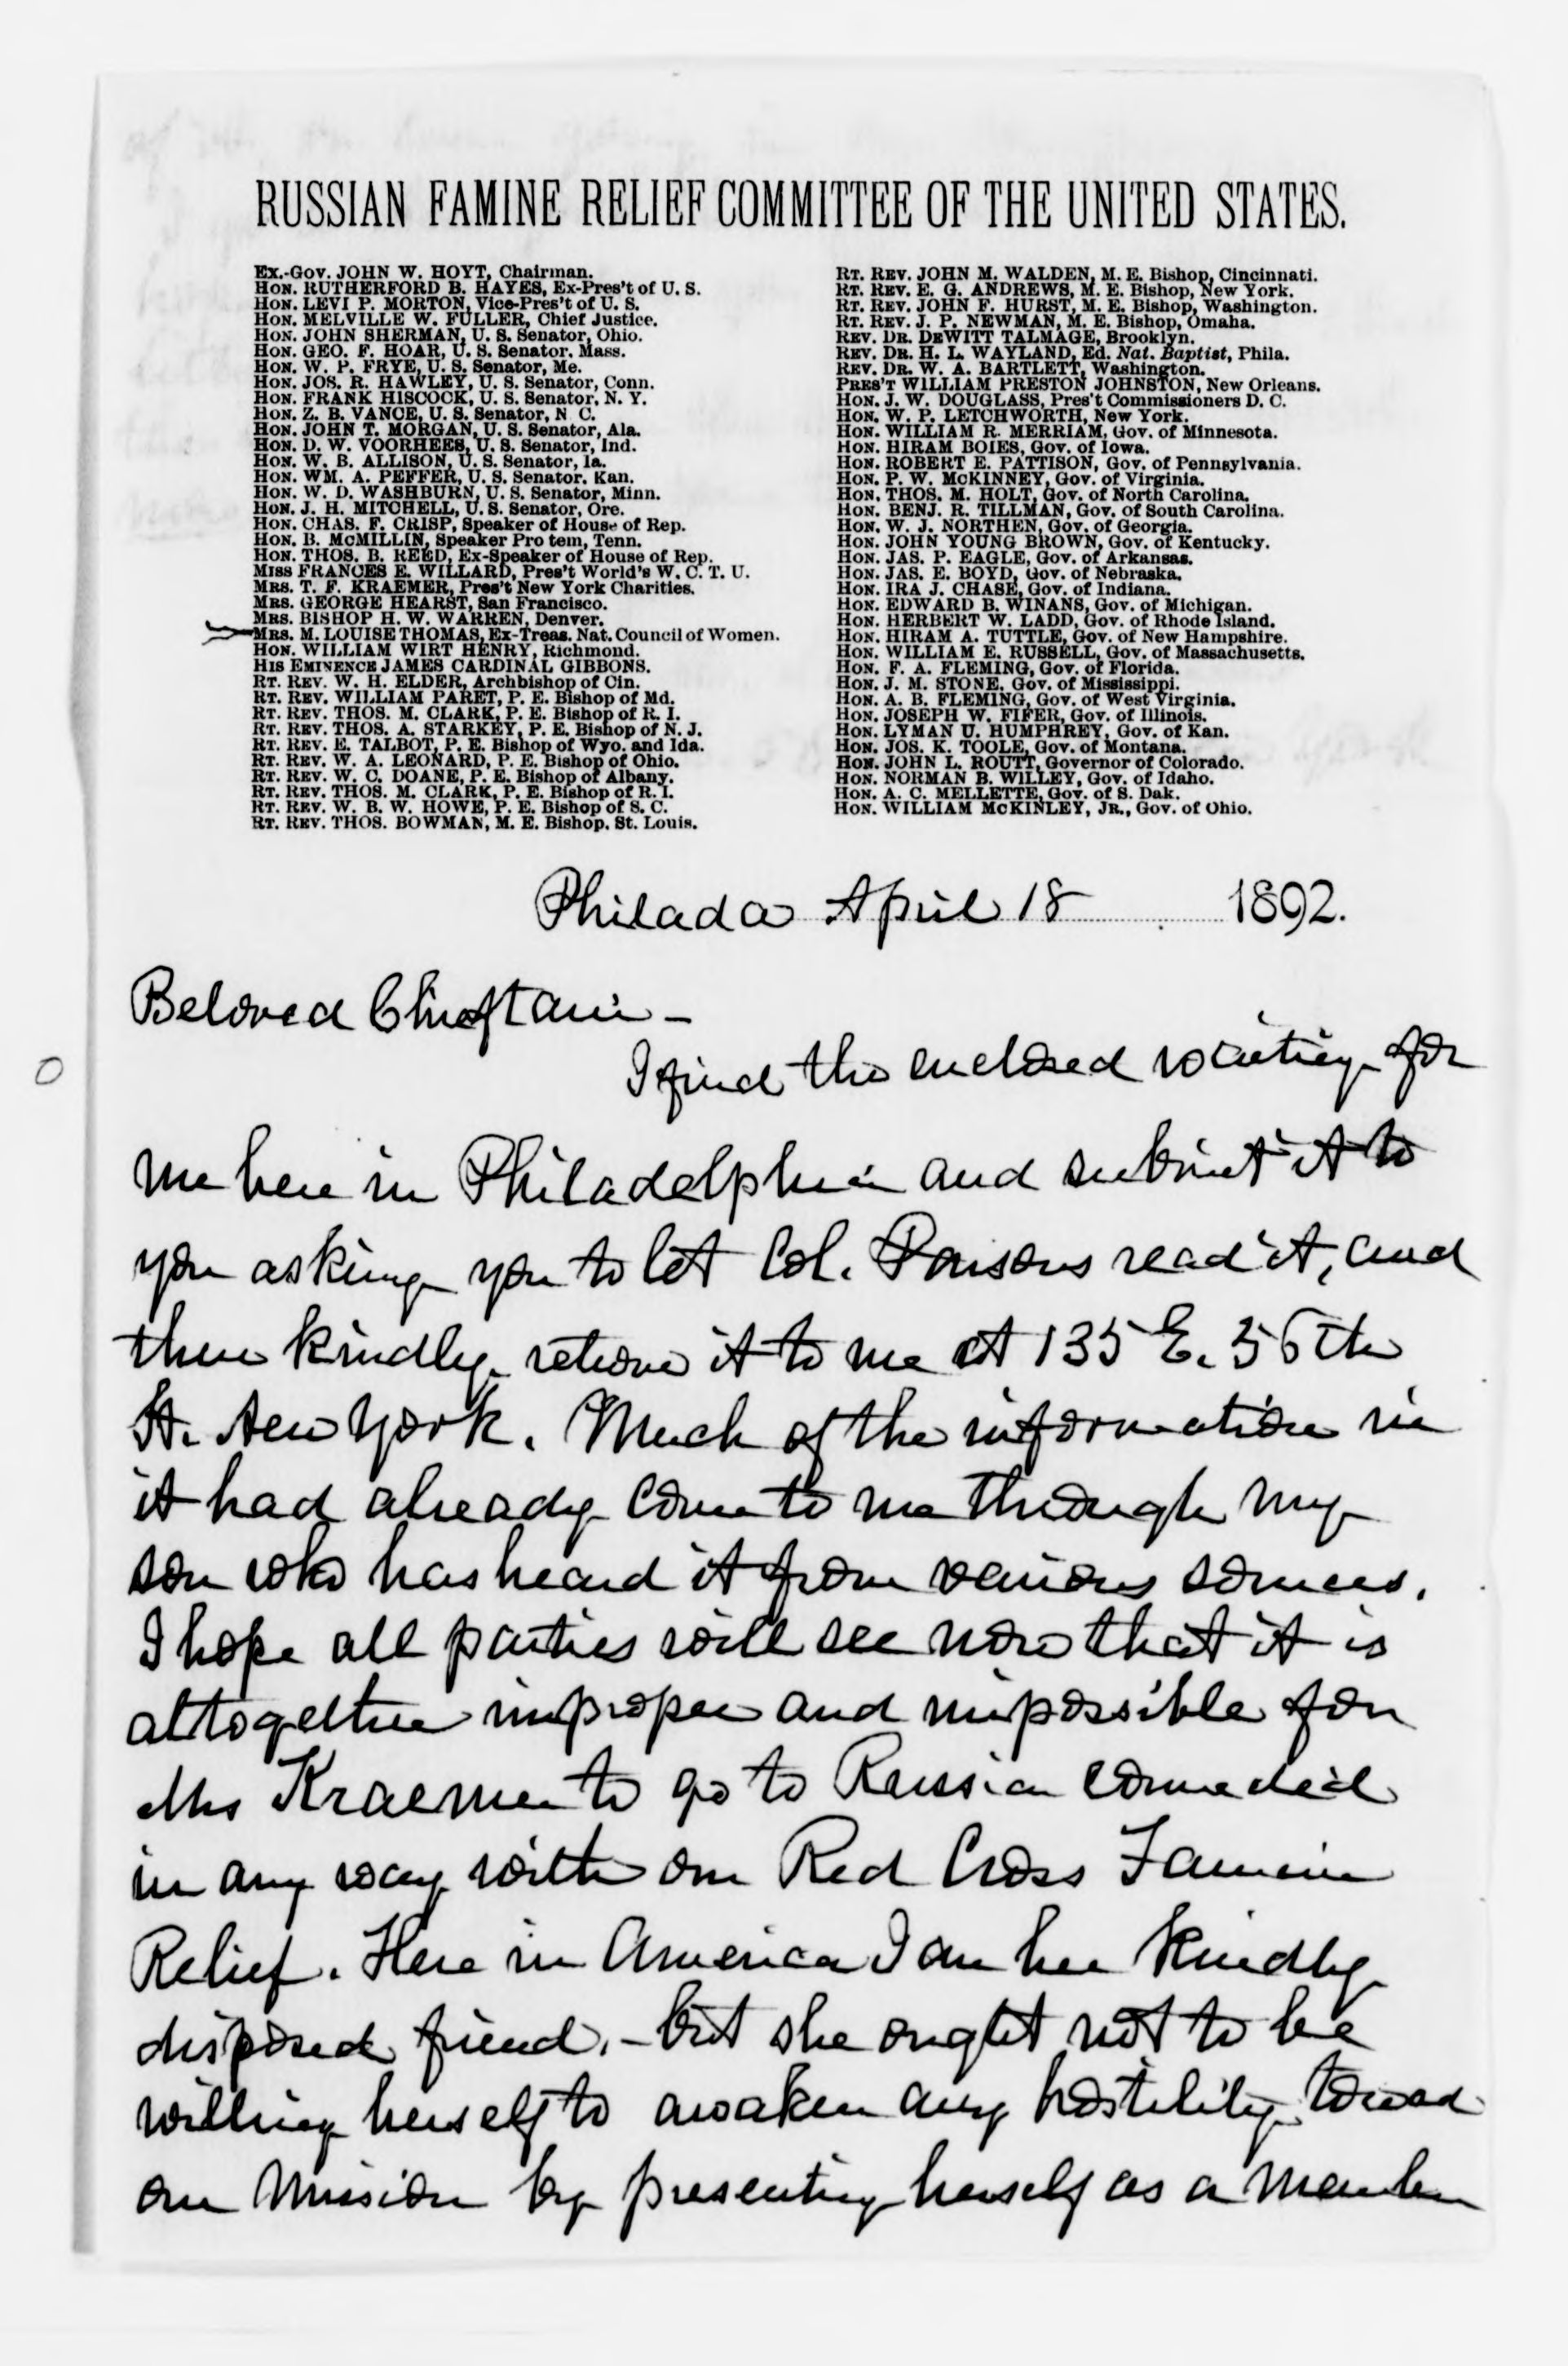 RUSSIAN FAMINE RELIEF COMMITTEE OF THE UNITED STATES.
Ex.-Gov. JOHN W. HOYT, Chairman.
Hon. RUTHERFORD B. HAYES, Ex-Pres't of U. S.
Hon. LEVI P. MORTON, Vice-Pres't of U. S.
Hon. MELVILLE W. FULLER, Chief Justice.
Hon. JOHN SHERMAN, U. S. Senator, Ohio.
Hon. GEO. F. HOAR, U. S. Senator, Mass.
Hon. W. P. FRYE, U. S. Senator, Me.
Hon. JOS. R. HAWLEY, U. S. Senator, Conn.
Hon. FRANK HISCOCK, U. S. Senator, N. Y.
Hon. Z. B. VANCE, U. S. Senator, N C.
Hon. JOHN T. MORGAN, U. S. Senator, Ala.
Hon. D. W. VOORHEES, U. S. Senator, Ind.
Hon. W. B. ALLISON, U. S. Senator, Ia.
Hon. WM. A. PEFFER, U. S. Senator. Kan.
Hon. W. D. WASHBURN, U. S. Senator, Minn.
Hon. J. H. MITCHELL, U. S. Senator, Ore.
Hon. CHAS. F. CRISP, Speaker of House of Rep.
Hon. B. McMILLIN, Speaker Pro tem, Tenn.
Hon. THOS. B. REED, Ex-Speaker of House of Rep.
Miss FRANCES E. WILLARD, Pres't World's W. C. T. U.
Mrs. T. F. KRAEMER, Pres't New York Charities.
Mrs. GEORGE HEARST, San Francisco.
Mrs. BISHOP H. W. WARREN, Denver.
Mrs. M. LOUISE THOMAS, Ex-Treas. Nat. Council of Women.
Hon. WILLIAM WIRT HENRY, Richmond.
His Eminence JAMES CARDINAL GIBBONS.
Rt. Rev. W. H. ELDER, Archbishop of Cin.
Rt. Rev. WILLIAM PARET, P. E. Bishop of Md.
Rt. Rev. THOS. M. CLARK, P. E. Bishop of R. I.
Rt. Rev. THOS. A. STARKEY, P. E. Bishop of N. J.
Rt. Rev. E. TALBOT, P. E. Bishop of Wyo. and Ida.
Rt. Rev. W. A. LEONARD, P. E. Bishop of Ohio.
Rt. Rev. W. C. DOANE, P. E. Bishop of Albany.
Rt. Rev. THOS. M. CLARK, P. E. Bishop of R. I.
Rt. Rev. W. B. W. HOWE, P. E. Bishop of S. C.
Rt. Rev. THOS. BOWMAN, M. E. Bishop. St. Louis.
Rt. Rev. JOHN M. WALDEN, M. E. Bishop, Cincinnati.
Rt. Rev. E. G. ANDREWS, M. E. Bishop, New York.
Rt. Rev. JOHN F. HURST, M. E. Bishop, Washington.
Rt. Rev. J. P. NEWMAN, M. E. Bishop, Omaha.
Rev. Dr. DeWITT TALMAGE, Brooklyn.
Rev. Dr. H. L. WAYLAND, Ed. Nat. Baptist, Phila.
Rev. Dr. W. A. BARTLETT, Washington.
Pres't WILLIAM PRESTON JOHNSTON, New Orleans.
Hon. J. W. DOUGLASS, Pres't Commissioners D. C.
Hon. W. P. LETCHWORTH, New York.
Hon. WILLIAM R. MERRIAM, Gov. of Minnesota.
Hon. HIRAM BOIES, Gov. of Iowa.
Hon. ROBERT E. PATTISON, Gov. of Pennsylvania.
Hon. P. W. McKINNEY, Gov. of Virginia.
Hon. THOS. M. HOLT, Gov. of North Carolina.
Hon. BENJ. R. TILLMAN, Gov. of South Carolina.
Hon. W. J. NORTHEN, Gov. of Georgia.
Hon. JOHN YOUNG BROWN, Gov. of Kentucky.
Hon. JAS. P. EAGLE, Gov. of Arkansas.
Hon. JAS. E. BOYD, Gov. of Nebraska.
Hon. IRA J. CHASE, Gov. of Indiana.
Hon. EDWARD B. WINANS, Gov. of Michigan.
Hon. HERBERT W. LADD, Gov. of Rhode Island.
Hon. HIRAM A. TUTTLE, Gov. of New Hampshire.
Hon. WILLIAM E. RUSSELL, Gov. of Massachusetts.
Hon. F. A. FLEMING, Gov. of Florida.
Hon. J. M. STONE, Gov. of Mississippi.
Hon. A. B. FLEMING, Gov. of West Virginia.
Hon. JOSEPH W. FIFER, Gov. of Illinois.
Hon. LYMAN U. HUMPHREY, Gov. of Kan.
Hon. JOS. K. TOOLE, Gov. of Montana.
Hon. JOHN L. ROUTT, Governor of Colorado.
Hon. NORMAN B. WILLEY, Gov. of Idaho.
Hon. A. C. MELLETTE, Gov. of S. Dak.
Hon. WILLIAM McKINLEY, Jr., Gov. of Ohio.
Philada April 18 1892.
Beloved Chieftain -
I find the enclosed waiting for
me here in Philadelphia and submit it to
you asking you to let Col. Parsons read it, and
then kindly return it to me at 135 E. 56th
St. New York. Much of the information in
it had already come to me through my
son who has heard it from various sources.
I hope all parties will see now that it is
altogether improper and impossible for
Mrs Kraemer to go to Russia connected
in any way with our Red Cross Famine
Relief. Here in America I am her kindly
disposed friend, - but she ought not to be
willing herself to awaken any hostility toward
our Mission by presenting herself as a member